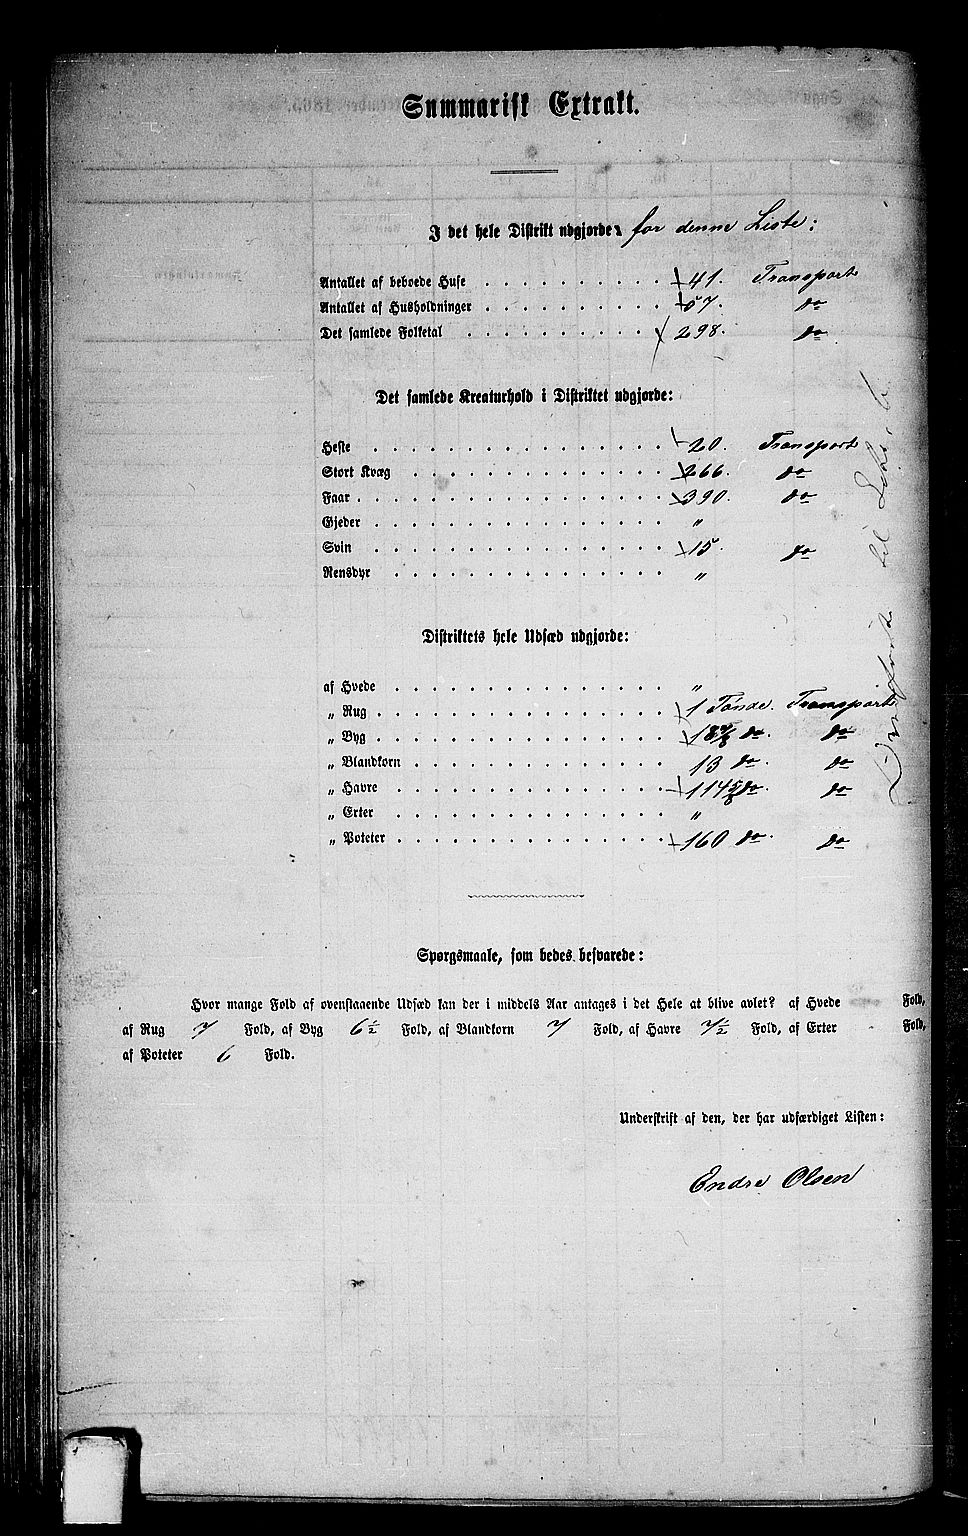 Summarisk Extrakt.
I det hele Distrikt udgjorde for denne Liste:
Antallet af beboede Huse 41. Transport
Antallet af Husholdninger 57. do
Det samlede Folketal 298. do
Det samlede Kreaturhold i Distriktet udgjorde:
Heste 20. Transport
Stort Kvæg 266. do
Faar 390. do
Gjeder "
Svin 15. do
Rensdyr "
Distriktets hele Udsæd udgjorde:
af Hvede "
„ Rug 1 Tønde. Transport
„ Byg do. do
„ Blandkorn 13 do. do
„ Havre do. do
„ Erter "
„ Poteter 160 do. do
Spørgsmaale, som bedes besvarede:
Hvor mange Fold af ovenstaaende Udsæd kan der i middels Aar antages i det Hele at blive avlet? af Hvede Fold,
af Rug 7 Fold, af Byg 6½ Fold, af Blandkorn 7 Fold, af Havre 7½ Fold, af Erter Fold,
af Poteter 6 Fold.
Underskrift af den, der har udfærdiget Listen:
Endre Olsen
til